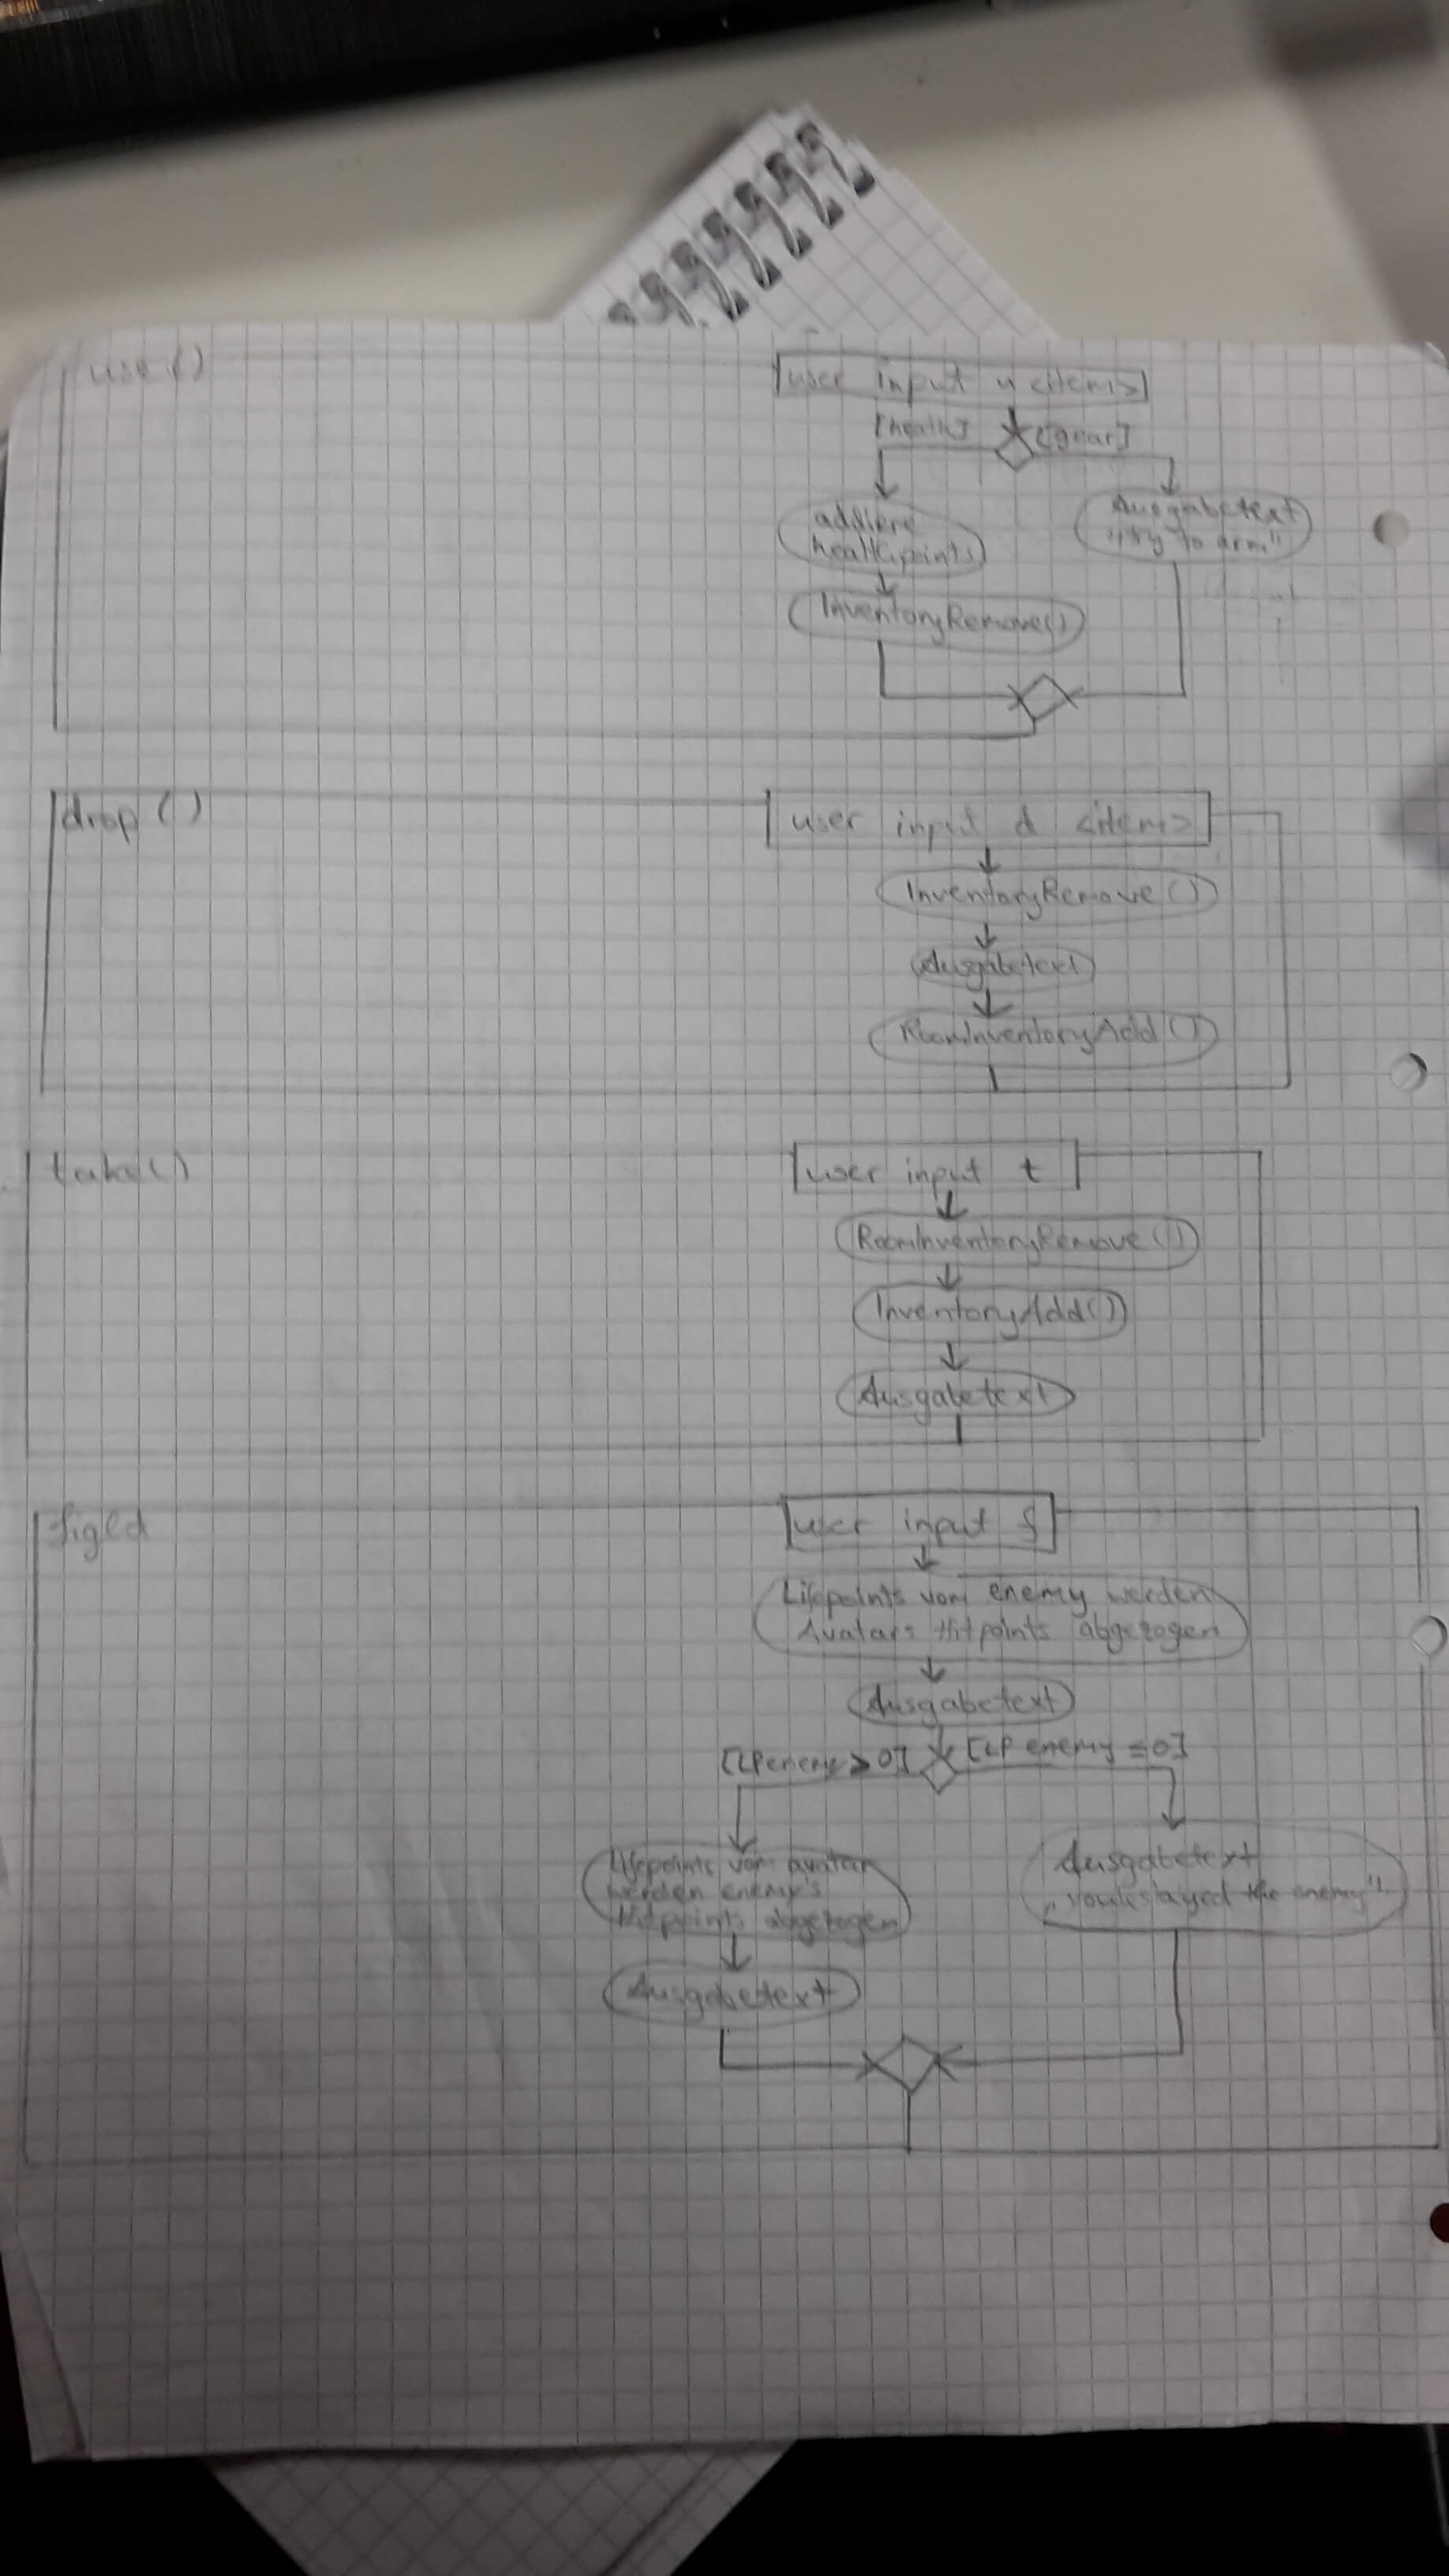 use()
user input u <item>
[health] [gear]
addiere
healthpoints
Ausgabetext
"try to arm"
InventoryRemove()
drop()
user input d <item>
InventoryRemove()
Ausgabetext
RoomInventoryAdd()
take()
user input t
RoomInventoryRemove()
InventoryAdd()
Ausgabetext
user input f
Lifepoints vom enemy werden
Avatars Hitpoints abgezogen
Ausgabetext
[LP enemy > 0] [LP enemy ≤ 0]
Lifepoints vom avatar
werden enemy's
Hitpoints abgezogen
Ausgabetext
slayed the enemy"
Ausgabetext